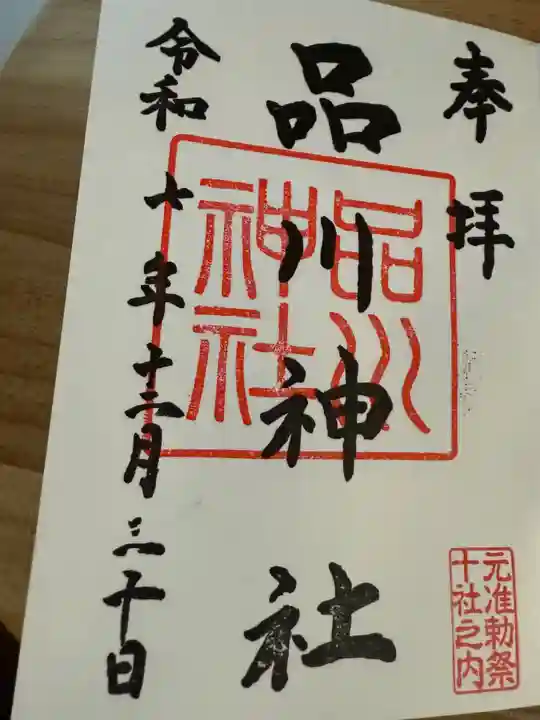 奉拝
元准勅祭
十社之内
品川神社
品川
神社
令和六年十二月三十日